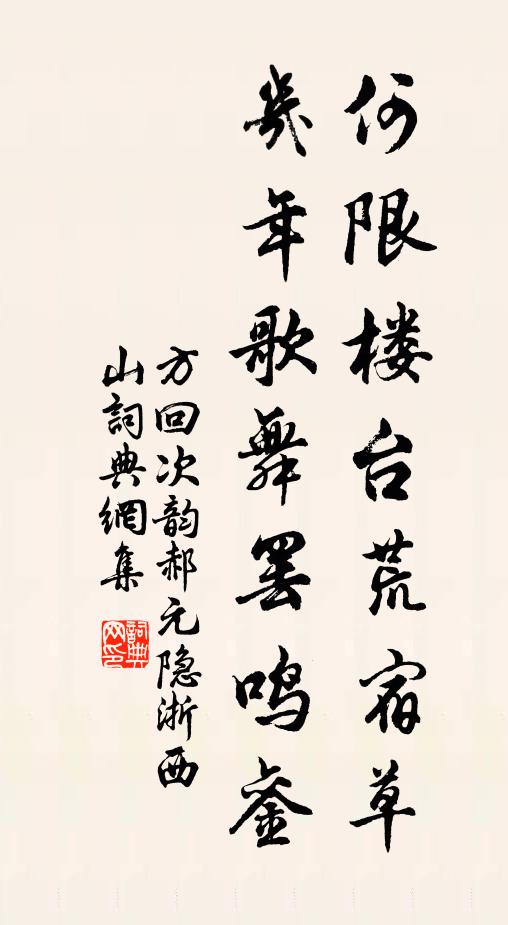 何限楼台荒宿草
幾年歌舞罢鸣銮
方回次韵郝元隐浙西
山詞典網集
詞典网印